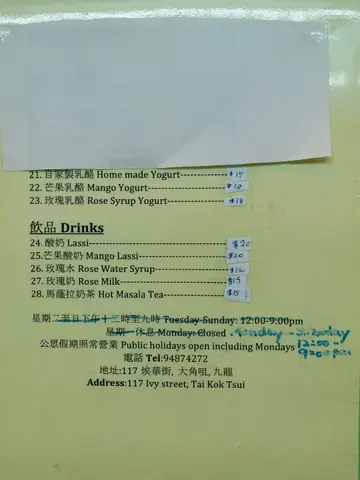 21. 自家製乳酪 Home made Yogurt---------------$15
22. 芒果乳酪 Mango Yogurt---------------------$18
23. 玫瑰乳酪 Rose Syrup Yogurt----------------$18
飲品 Drinks
24. 酸奶 Lassi-------------------------------------$20
25.芒果酸奶 Mango Lassi------------------------$20
26. 玫瑰水 Rose Water Syrup-------------------$12
27. 玫瑰奶 Rose Milk----------------------------$15
28. 馬薩拉奶茶 Hot Masala Tea----------------$15
星期二至日下午十二時至九時 Tuesday-Sunday: 12:00-9:00pm
星期一休息 Monday: Closed Monday - Sunday
公眾假期照常營業 Public holidays open including Mondays 12:00 -
9:00pm
電話 Tel:94874272
地址:117 埃華街, 大角咀, 九龍
Address:117 Ivy street, Tai Kok Tsui